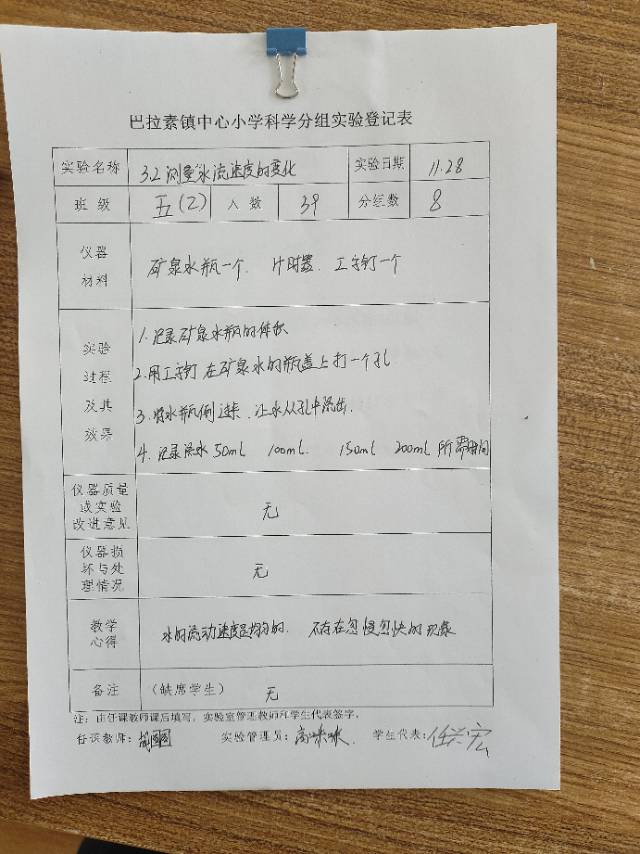 巴拉素镇中心小学科学分组实验登记表
实验名称 3.2 测量水流速度的变化 实验日期 11.28
班 级 五(2) 人 数 39 分组数 8
仪器
材料
矿泉水瓶一个. 计时器. 工字钉一个
实验
过程
及其
效果
1. 记录矿泉水瓶的体积
2. 用工字钉在矿泉水的瓶盖上打一个孔
3. 将水瓶倒过来. 让水从孔中流出.
4. 记录流水 50ml 100ml. 150ml 200ml 所需时间
仪器质量
或实验
改进意见
无
仪器损
坏与处
理情况
无
教学
心得
水的流动速度是均匀的. 不存在忽慢忽快的现象
备注 (缺席学生) 无
注: 由任课教师课后填写, 实验室管理教师和学生代表签字。
任课教师: 实验管理员: 学生代表: